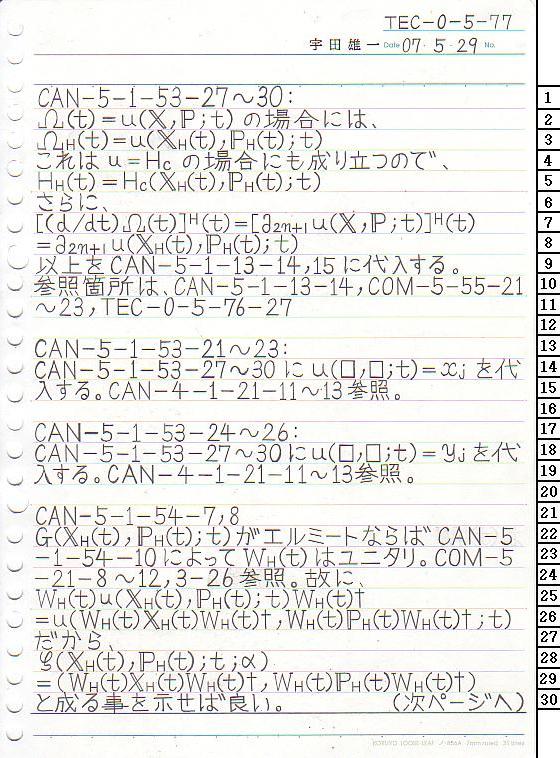 TEC-0-5-77
宇田雄一 Date 07・5・29 No.
CAN-5-1-53-27~30:
Ω(t)=u(𝕏,ℙ;t)の場合には、
Ω_H(t)=u(𝕏_H(t),ℙ_H(t);t)
これはu=Hcの場合にも成り立つので、
H_H(t)=Hc(𝕏_H(t),ℙ_H(t);t)
さらに、
[(d/dt)Ω(t)]^H(t)=[∂_{2n+1}u(𝕏,ℙ;t)]^H(t)
=∂_{2n+1}u(𝕏_H(t),ℙ_H(t);t)
以上をCAN-5-1-13-14,15に代入する。
参照箇所は、CAN-5-1-13-14,COM-5-55-21
~23,TEC-0-5-76-27
CAN-5-1-53-21~23:
CAN-5-1-53-27~30にu(□,□;t)=xjを代
入する。CAN-4-1-21-11~13参照。
CAN-5-1-53-24~26:
CAN-5-1-53-27~30にu(□,□;t)=yjを代
入する。CAN-4-1-21-11~13参照。
CAN-5-1-54-7,8
G(𝕏_H(t),ℙ_H(t);t)がエルミートならばCAN-5
-1-54-10によってW_H(t)はユニタリ。COM-5
-21-8~12,3-26参照。故に、
W_H(t)u(𝕏_H(t),ℙ_H(t);t)W_H(t)†
=u(W_H(t)𝕏_H(t)W_H(t)†,W_H(t)ℙ_H(t)W_H(t)†;t)
だから、
(𝕏_H(t),ℙ_H(t);t;α)
=(W_H(t)𝕏_H(t)W_H(t)†,W_H(t)ℙ_H(t)W_H(t)†)
と成る事を示せば良い。 (次ページへ)
KOKUYO LOOSE-LEAF ノ-836A 7mm ruled 31 lines
1
2
3
4
5
6
7
8
9
10
11
12
13
14
15
16
17
18
19
20
21
22
23
24
25
26
27
28
29
30